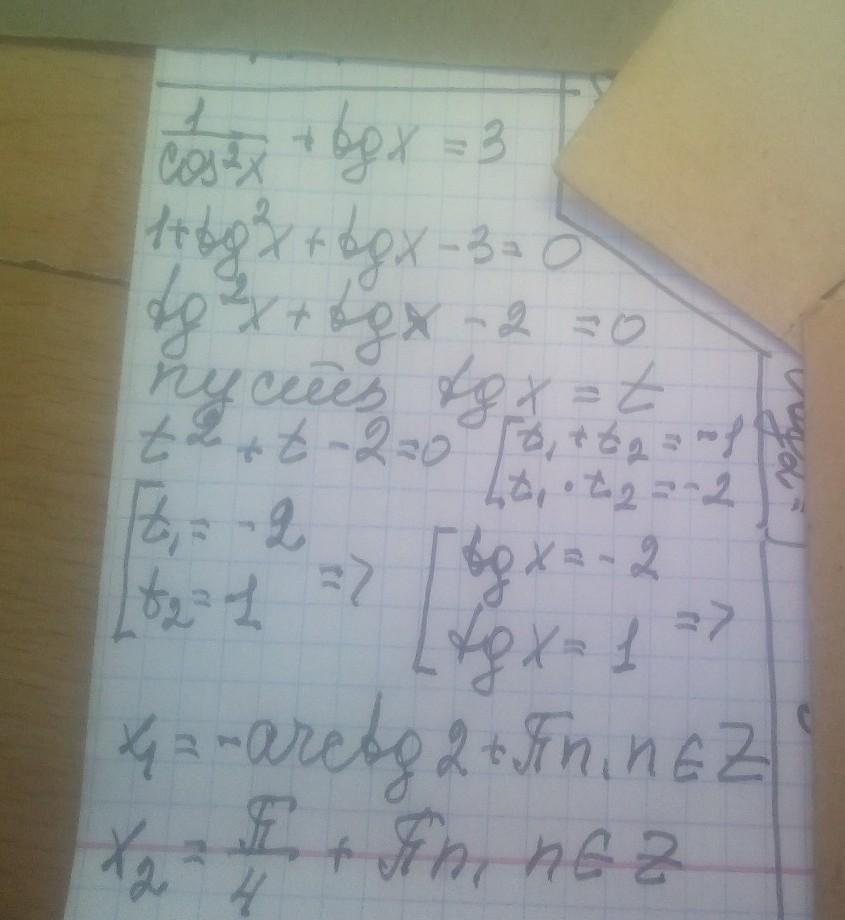 1/cos²x + tgx = 3
1+tg²x + tgx - 3 = 0
tg²x + tgx - 2 = 0
пусть tgx = t
t² + t - 2 = 0 [t₁ + t₂ = -1
t₁ · t₂ = -2
[t₁ = -2
t₂ = 1 => [tgx = -2
tgx = 1 =>
x₁ = -arctg 2 + πn, n ∈ Z
x₂ = π/4 + πn, n ∈ Z